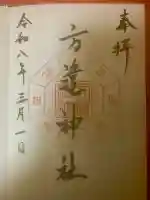 奉拝
方違神社
令和八年三月一日